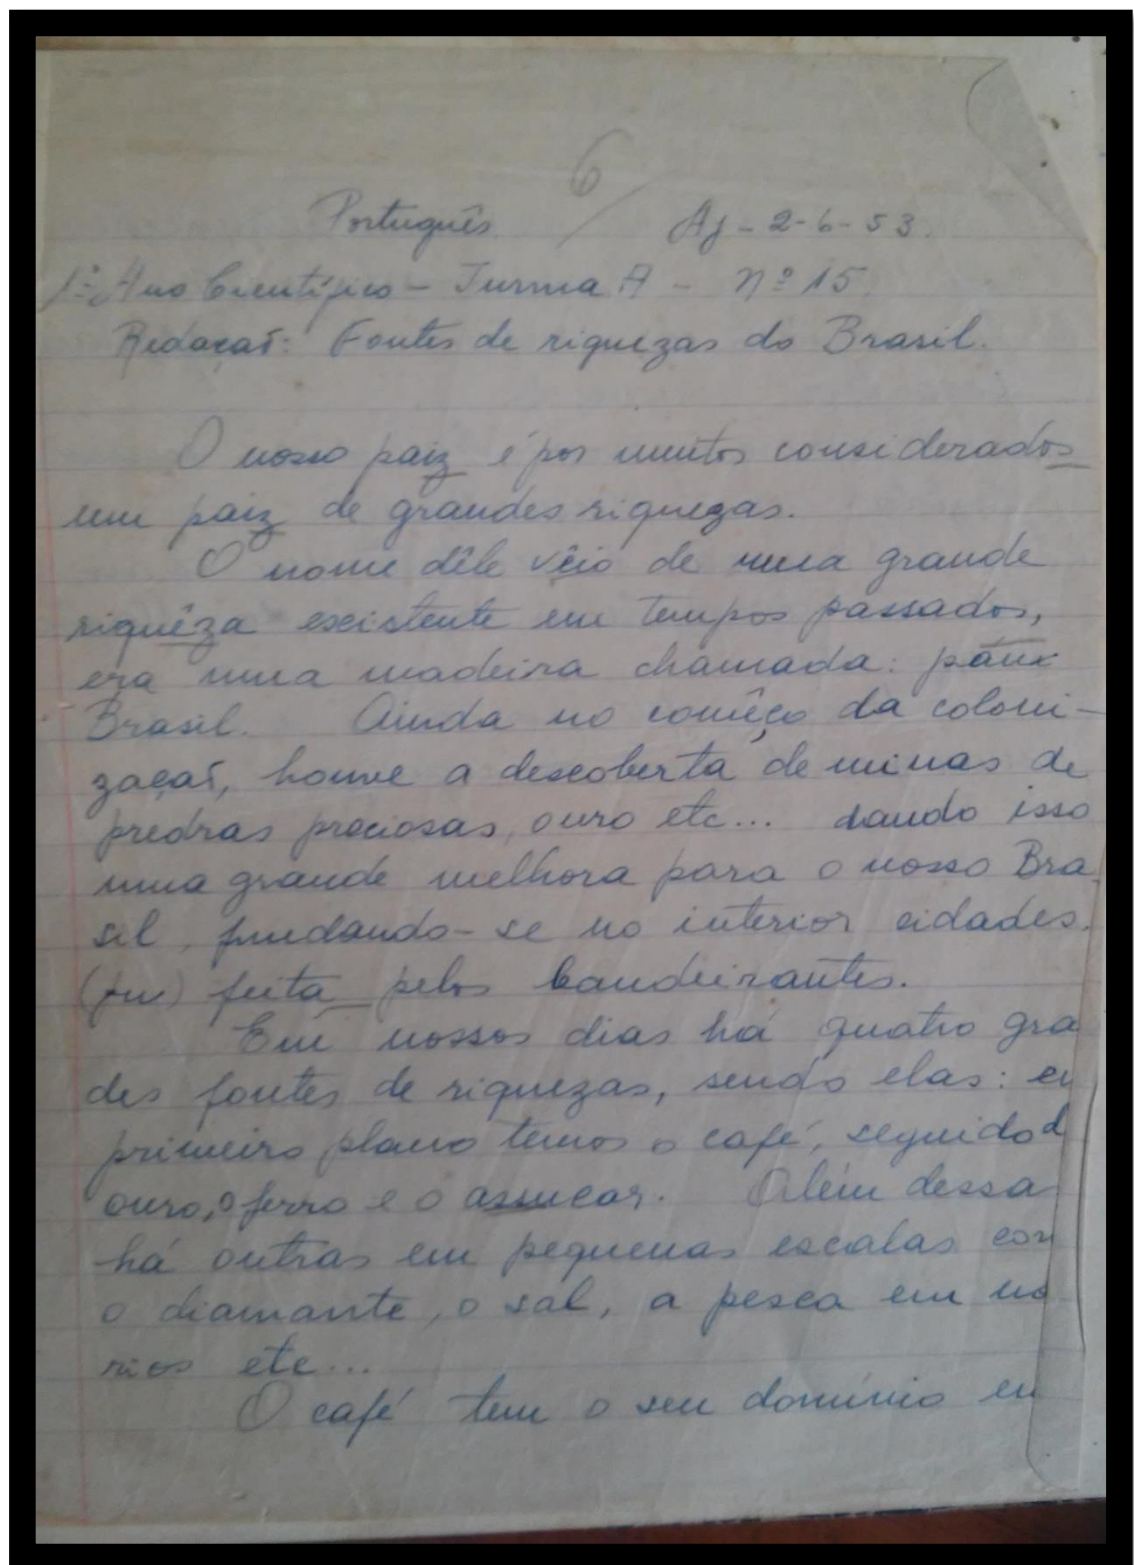 6
Português. Aj - 2-6-53.
1º Ano Científico - Turma A - Nº 15.
Redação: Fontes de riquezas do Brasil.
O nosso paiz é por muitos considerados
um paiz de grandes riquezas.
O nome dêle vêio de uma grande
riquêza existente em tempos passados,
era uma madeira chamada: páu
Brasil. Ainda no comêço da coloni-
zação, houve a descoberta de minas de
predras preciosas, ouro etc... dando isso
uma grande melhora para o nosso Bra
sil, fundando-se no interior cidades.
(fu) feita pelos bandeirantes.
Em nossos dias há quatro gra
des fontes de riquezas, sendo elas: e
primeiro plano temos o café, seguido d
ouro, o ferro e o assucar. Além dessa
há outras em pequenas escalas com
o diamante, o sal, a pesca em no
rios etc...
O café tem o seu domínio em